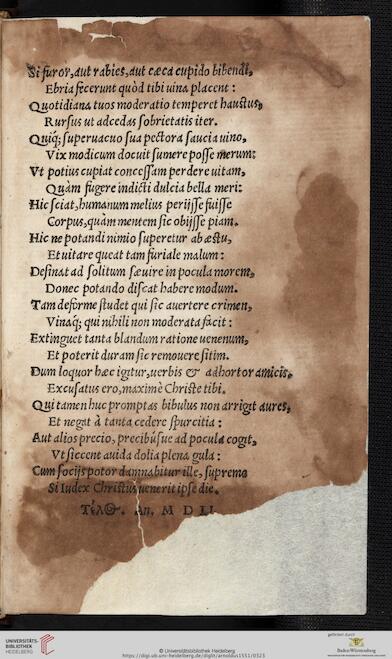 Si furor, aut rabies, aut cæca cupido bibendi,
Ebria fecerunt quòd tibi uina placent:
Quotidiana tuos moderatio temperet haustus,
Rursus ut adcedas sobrietatis iter.
Quiq; superuacuo sua pectora saucia uino,
Vix modicum docuit sumere posse merum:
Vt potius cupiat concessam perdere uitam,
Quàm fugere indicti dulcia bella meri:
Hic sciat, humanum melius perijsse fuisse
Corpus, quàm mentem sic obijsse piam.
Hic ne potandi nimio superetur ab æstu,
Et uitare queat tam furiale malum:
Desinat ad solitum sæuire in pocula morem,
Donec potando discat habere modum.
Tam deforme studet qui sic auertere crimen,
Vinaq; qui nihili non moderata facit:
Extinguet tanta blandum ratione uenenum,
Et poterit duram sic remouere sitim.
Dum loquor hæc igtur, uerbis & adhortor amicis,
Excusatus ero, maximè Christe tibi.
Qui tamen huc promptas bibulus non arrigit aures,
Et negat à tanta cedere spurcitia:
Aut alios precio, precibúsue ad pocula cogit,
Vt siccent auida dolia plena gula:
Cum socijs potor damnabitur ille, supremo
Si Iudex Christus uenerit ipse die.
Τέλος. An. M D LI.
UNIVERSITÄTS-
BIBLIOTHEK
HEIDELBERG
© Universitätsbibliothek Heidelberg
https://digi.ub.uni-heidelberg.de/diglit/arnoldus1551/0323
gefördert durch
Baden-Württemberg